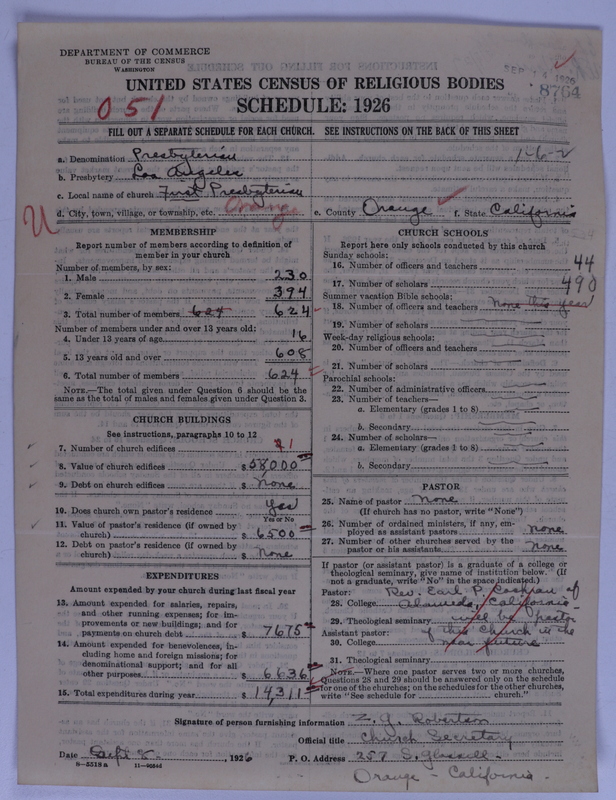 DEPARTMENT OF COMMERCE
BUREAU OF THE CENSUS
WASHINGTON
SEP 14 1926
8764
UNITED STATES CENSUS OF RELIGIOUS BODIES
051
SCHEDULE: 1926
FILL OUT A SEPARATE SCHEDULE FOR EACH CHURCH. SEE INSTRUCTIONS ON THE BACK OF THIS SHEET
a. Denomination Presbyterian
1-6-2
b. Presbytery Los Angeles
c. Local name of church First Presbyterian
U
d. City, town, village, or township, etc. Orange e. County Orange f. State California
MEMBERSHIP
Report number of members according to definition of
member in your church
Number of members, by sex:
1. Male 230
2. Female 394
3. Total number of members 624 624
Number of members under and over 13 years old:
4. Under 13 years of age 16
5. 13 years old and over 608
6. Total number of members 624
NOTE.—The total given under Question 6 should be the
same as the total of males and females given under Question 3.
CHURCH BUILDINGS
See instructions, paragraphs 10 to 12
7. Number of church edifices 1
8. Value of church edifices $58000
9. Debt on church edifices $None
10. Does church own pastor's residence Yes
Yes or No
11. Value of pastor's residence (if owned by
church) $6500
12. Debt on pastor's residence (if owned by
church) $None
EXPENDITURES
Amount expended by your church during last fiscal year
13. Amount expended for salaries, repairs,
and other running expenses; for im-
provements or new buildings; and for
payments on church debt $7675
14. Amount expended for benevolences, in-
cluding home and foreign missions; for
denominational support; and for all
other purposes $6636
15. Total expenditures during year $14,311
CHURCH SCHOOLS
Report here only schools conducted by this church
Sunday schools:
16. Number of officers and teachers 44
17. Number of scholars 490
Summer vacation Bible schools:
18. Number of officers and teachers None this year
19. Number of scholars
Week-day religious schools:
20. Number of officers and teachers
21. Number of scholars
Parochial schools:
22. Number of administrative officers
23. Number of teachers—
a. Elementary (grades 1 to 8)
b. Secondary
24. Number of scholars—
a. Elementary (grades 1 to 8)
b. Secondary
PASTOR
25. Name of pastor None
(If church has no pastor, write "None")
26. Number of ordained ministers, if any, em-
ployed as assistant pastors none
27. Number of other churches served by the
pastor or his assistants none
If pastor (or assistant pastor) is a graduate of a college or
theological seminary, give name of institution below. (If
not a graduate, write "No" in the space indicated.)
Pastor: Rev. Earl P. Cochran of
28. College Alameda, California
29. Theological seminary will be pastor
Assistant pastor: of this Church in the
30. College near future
31. Theological seminary
NOTE.—Where one pastor serves two or more churches,
Questions 28 and 29 should be answered only on the schedule
for one of the churches; on the schedules for the other churches,
write "See schedule for church."
Signature of person furnishing information Z. G. Robertson
Official title Church Secretary
Date Sept 8, 1926 P. O. Address 257 S.
8-5518 a
Orange - California.